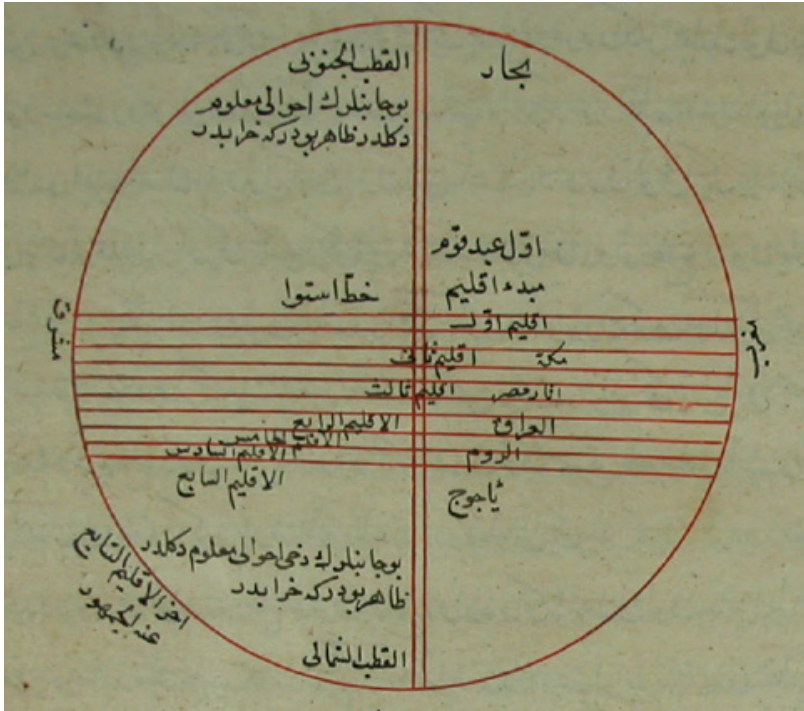 القطب الجنوبى
بوجانبلرك احوالى معلوم
دكلدر ظاهر بودركه خرابدر
بحار
اول عبد قوم
مبدء اقليم
خط استوا
اقليم اول
مكة
اقليم ثانى
اقليم ثالث
مصر
الاقليم الرابع
العراق
الاقليم الخامس
الاقليم السادس
الروم
الاقليم السابع
ياجوج
مشرق
مغرب
بوجانبلرك دخى احوالى معلوم دكلدر
ظاهر بودركه خرابدر
اخر الاقليم السابع
عند الجمهور
القطب الشمالى